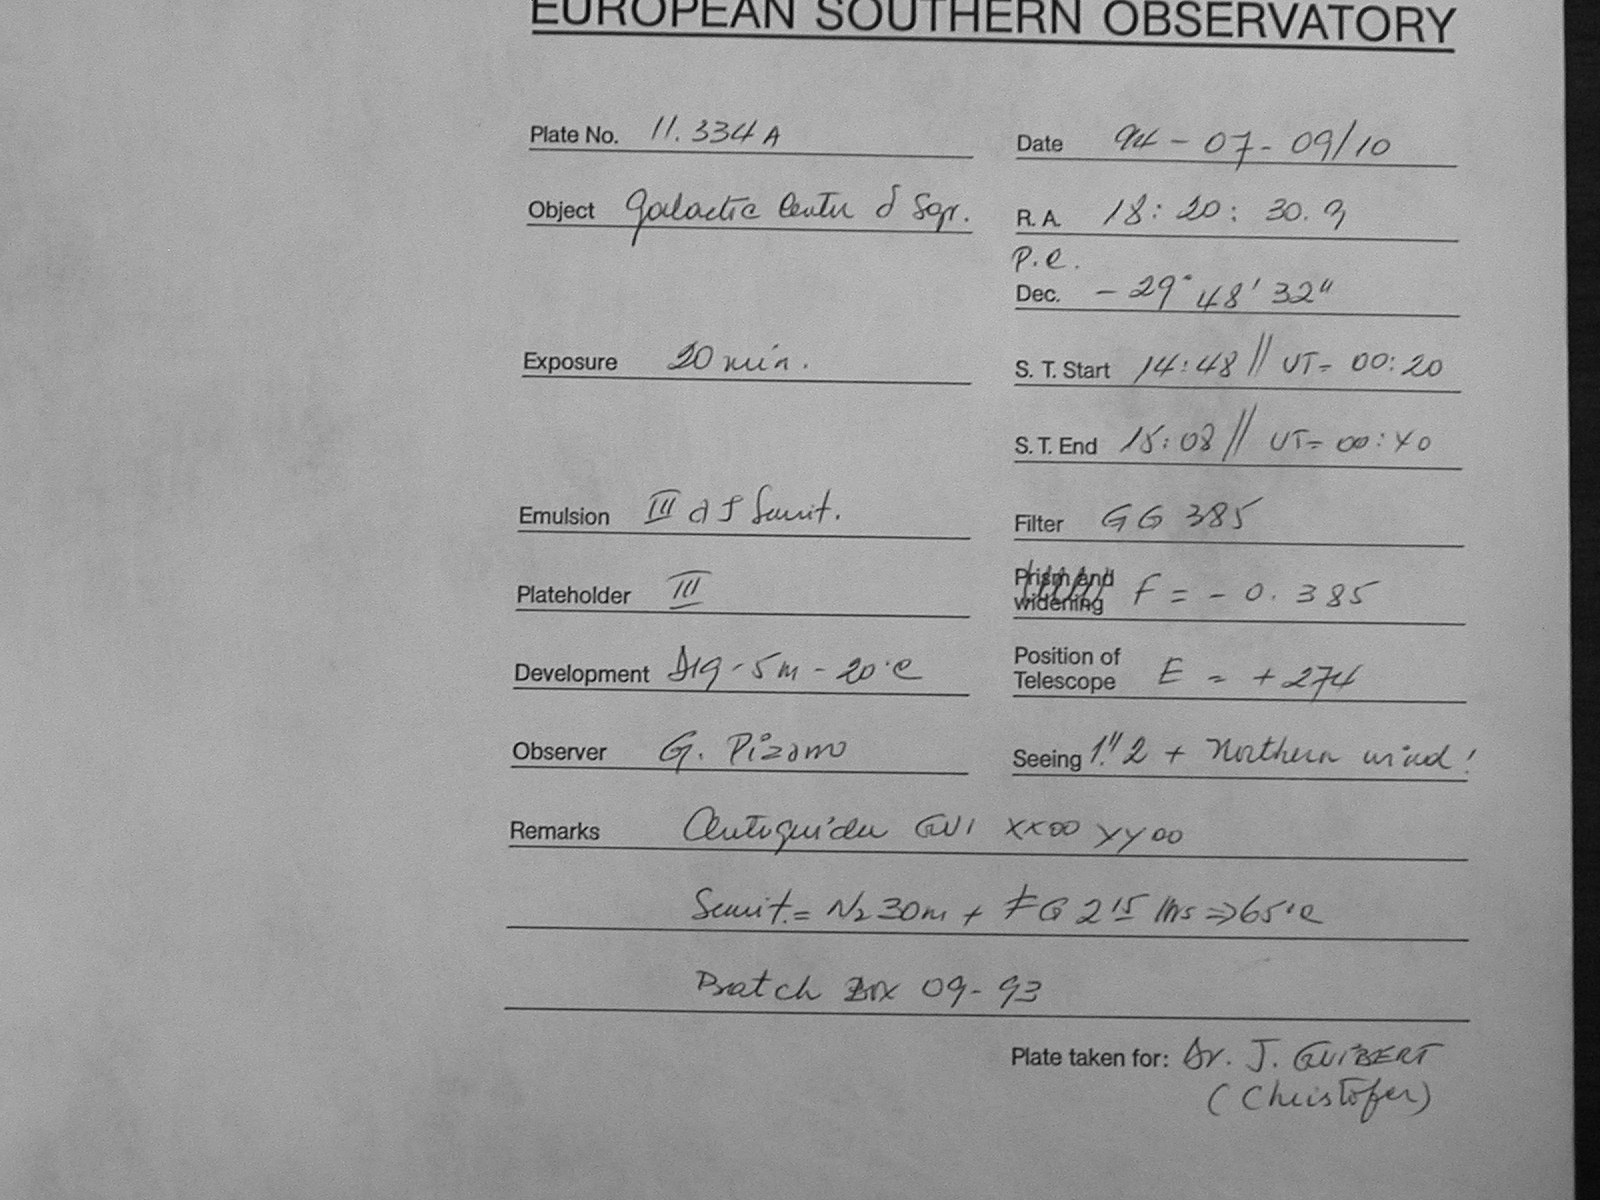 EUROPEAN SOUTHERN OBSERVATORY
Plate No. 11.334A
Date 94-07-09/10
Object Galactic Center δ Sgr.
R. A. 18: 20: 30.9
P.e.
Dec. -29° 48' 32"
Exposure 20 min.
S. T. Start 14:48 // UT= 00:20
S. T. End 15:08 // UT= 00:40
Emulsion III a J Sensit.
Filter GG 385
Plateholder III
Prism and widening F = - 0.385
Development D19-5m-20°C
Position of Telescope E = +274
Observer G. Pizarro
Seeing 1."2 + Northern wind!
Remarks Autoguider GUI XX00 YY00
Sensit.= N2 30m + FG 2 15 hrs ⇒ 65°C
Batch Box 09-93
Plate taken for: Dr. J. GUIBERT
(Christofer)